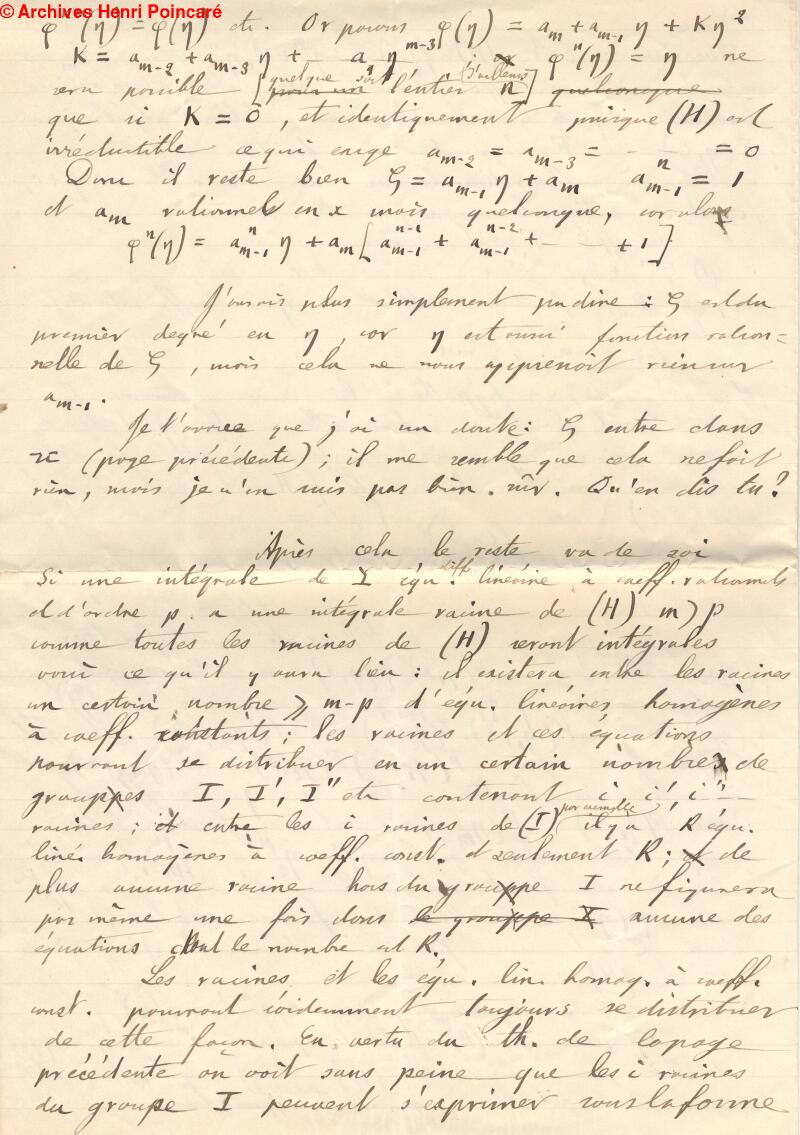 © Archives Henri Poincaré
φ (η) = φ(η) etc. Or posons φ(η) = a_m + a_{m-1} η + K η²
K = a_{m-2} + a_{m-3} η + a_1 η^{m-3} φⁿ(η) = η ne
sera possible [quelque soit l'entier (d'ailleurs) n]
que si K = 0, et identiquement puisque (H) est
irréductible ce qui exige a_{m-2} = a_{m-3} = - - - = 0
Donc il reste bien ζ = a_{m-1} η + a_m a_{m-1}^n = 1
et a_m rationnel en x mais quelconque, car alors
φⁿ(η) = a_{m-1}^n η + a_m [a_{m-1}^{n-1} + a_{m-1}^{n-2} + - - + 1]
J'aurais plus simplement pu dire : ζ est du
premier degré en η, car η est aussi fonction ration=
nelle de ζ, mais cela ne nous apprenoit rien sur
a_{m-1}.
Je t'avoue que j'ai un doute : ζ entre dans
(page précédente) ; il me semble que cela ne fait
rien, mais je n'en suis pas bien sûr. Qu'en dis tu ?
Après cela le reste va de soi
Si une intégrale de 1 équ. diff. linéaire à coeff. rationnels
et d'ordre p a une intégrale racine de (H) m > p
comme toutes les racines de (H) seront intégrales
voici ce qu'il y aura lieu : il existera entre les racines
un certain nombre ⩾ m-p d'équ. linéaires homogènes
à coeff. constants ; les racines et ces équations
pourront se distribuer en un certain nombre de
groupes I, I', I'' etc contenant i i', i'' - -
racines ; et entre les i racines de (I) par exemple il y a R équ.
liné. homogènes à coeff. const. et seulement R ; et de
plus aucune racine hors du groupe I ne figurera
pas même une fois dans le groupe I aucune des
équations dont le nombre est R.
Les racines et les équ. lin. homog. à coeff.
const. pourront évidemment toujours se distribuer
de cette façon. En vertu du th. de la page
précédente on voit sans peine que les i racines
du groupe I peuvent s'exprimer sous la forme